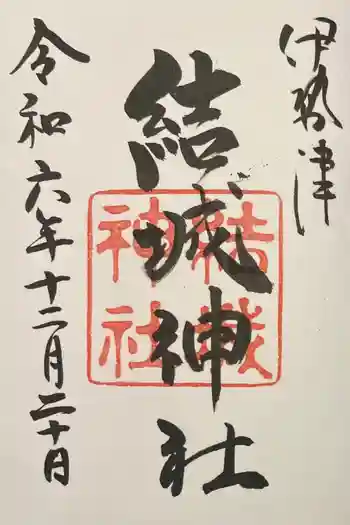 伊勢津
結城神社
結城
神社
令和六年十二月二十日